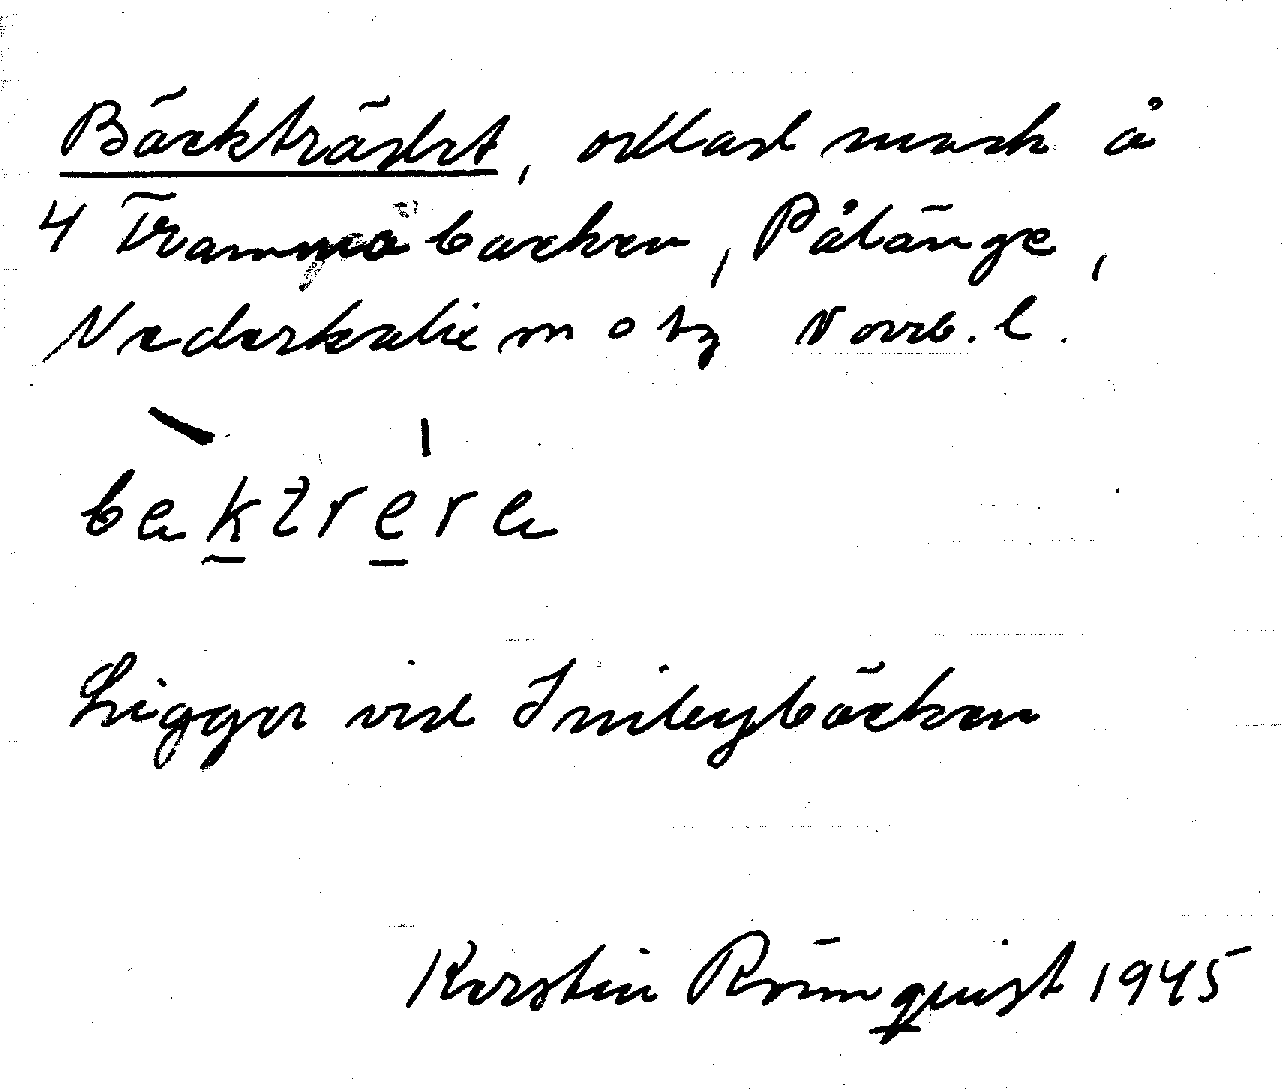 Bäckträdet, odlad mark å
4 Trammåbacken, Pålänge,
Nederkalix sn o tg Norrb. l.
baktrera
Ligger vid Smileybäcken
Kerstin Rönnquist 1945